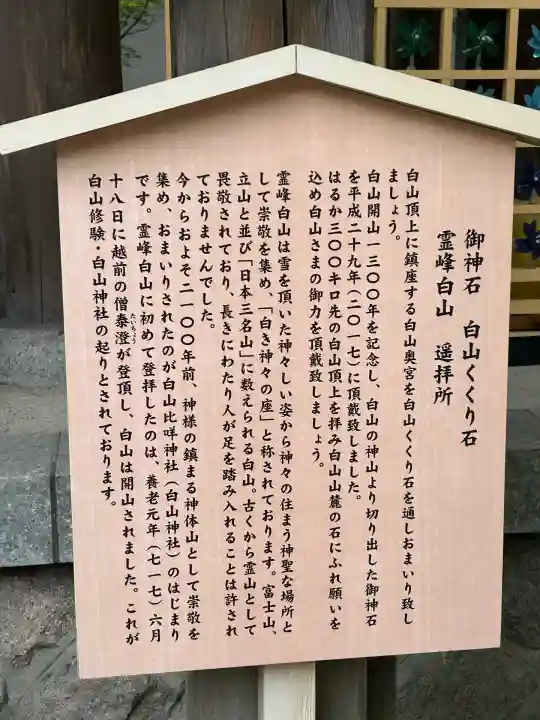 御神石　白山くくり石
霊峰白山　遥拝所
白山頂上に鎮座する白山奥宮を白山くくり石を通しおまいり致し
ましょう。
白山開山一三〇〇年を記念し、白山の神山より切り出した御神石
を平成二十九年（二〇一七）に頂戴致しました。
はるか三〇〇キロ先の白山頂上を拝み白山山麓の石にふれ願いを
込め白山さまの御力を頂戴致しましょう。
霊峰白山は雪を頂いた神々しい姿から神々の住まう神聖な場所と
して崇敬を集め、「白き神々の座」と称されております。富士山、
立山と並び「日本三名山」に数えられる白山。古くから霊山として
畏敬されており、長きにわたり人が足を踏み入れることは許され
ておりませんでした。
今からおよそ二一〇〇年前、神様の鎮まる神体山として崇敬を
集め、おまいりされたのが白山比咩神社（白山神社）のはじまり
です。霊峰白山に初めて登拝したのは、養老元年（七一七）六月
十八日に越前の僧泰澄（たいちょう）が登頂し、白山は開山されました。これが
白山修験・白山神社の起りとされております。